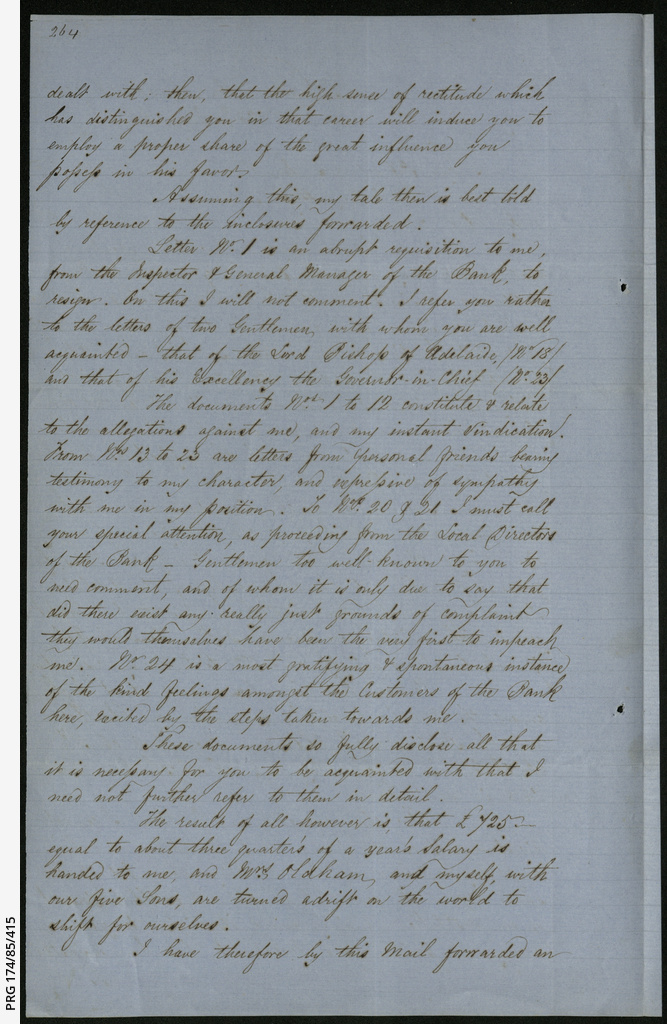 264
dealt with; then, that the high sense of rectitude which
has distinguished you in that career will induce you to
employ a proper share of the great influence you
possess in his favor.
Assuming this, my tale then is best told
by reference to the inclosures forwarded.
Letter No. 1 is an abrupt requisition to me,
from the Inspector & General Manager of the Bank, to
resign. On this I will not comment. I refer you rather
to the letters of two Gentlemen, with whom you are well
acquainted – that of the Lord Bishop of Adelaide, (No. 18)
and that of his Excellency the Governor-in-Chief (No. 23)
The documents Nos. 1 to 12 constitute & relate
to the allegations against me, and my instant vindication.
From Nos 13 to 23 are letters from personal friends bearing
testimony to my character, and expressive of sympathy
with me in my position. To Nos. 20 & 21 I must call
your special attention, as proceeding from the Local Directors
of the Bank – Gentlemen too well-known to you to
need comment, and of whom it is only due to say that
did there exist any really just grounds of complaint
they would themselves have been the very first to impeach
me. No. 24 is a most gratifying & spontaneous instance
of the kind feelings amongst the Customers of the Bank
here, excited by the steps taken towards me.
These documents so fully disclose all that
it is necessary for you to be acquainted with that I
need not further refer to them in detail.
The result of all however is, that £725 –
equal to about three quarters of a years Salary is
handed to me, and Mrs. Oldham, and myself, with
our five Sons, are turned adrift on the world to
shift for ourselves.
I have therefore by this Mail forwarded an
PRG 174/85/415